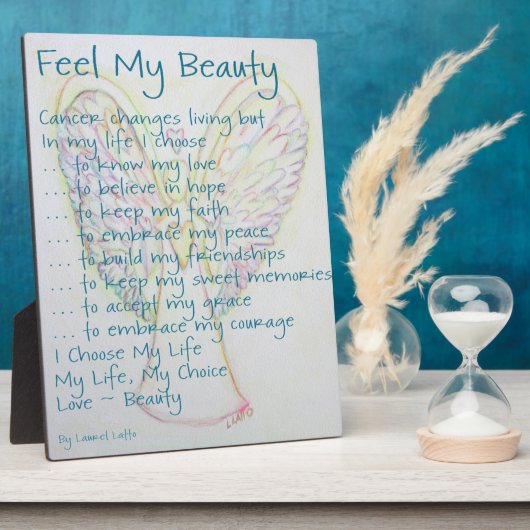 Feel My Beauty
Cancer changes living but
In my life I choose
... to know my love
... to believe in hope
... to keep my faith
... to embrace my peace
... to build my friendships
... to keep my sweet memories
... to accept my grace
... to embrace my courage
I Choose My Life
My Life, My Choice
Love ~ Beauty
By Laurel Latto
LLATTO